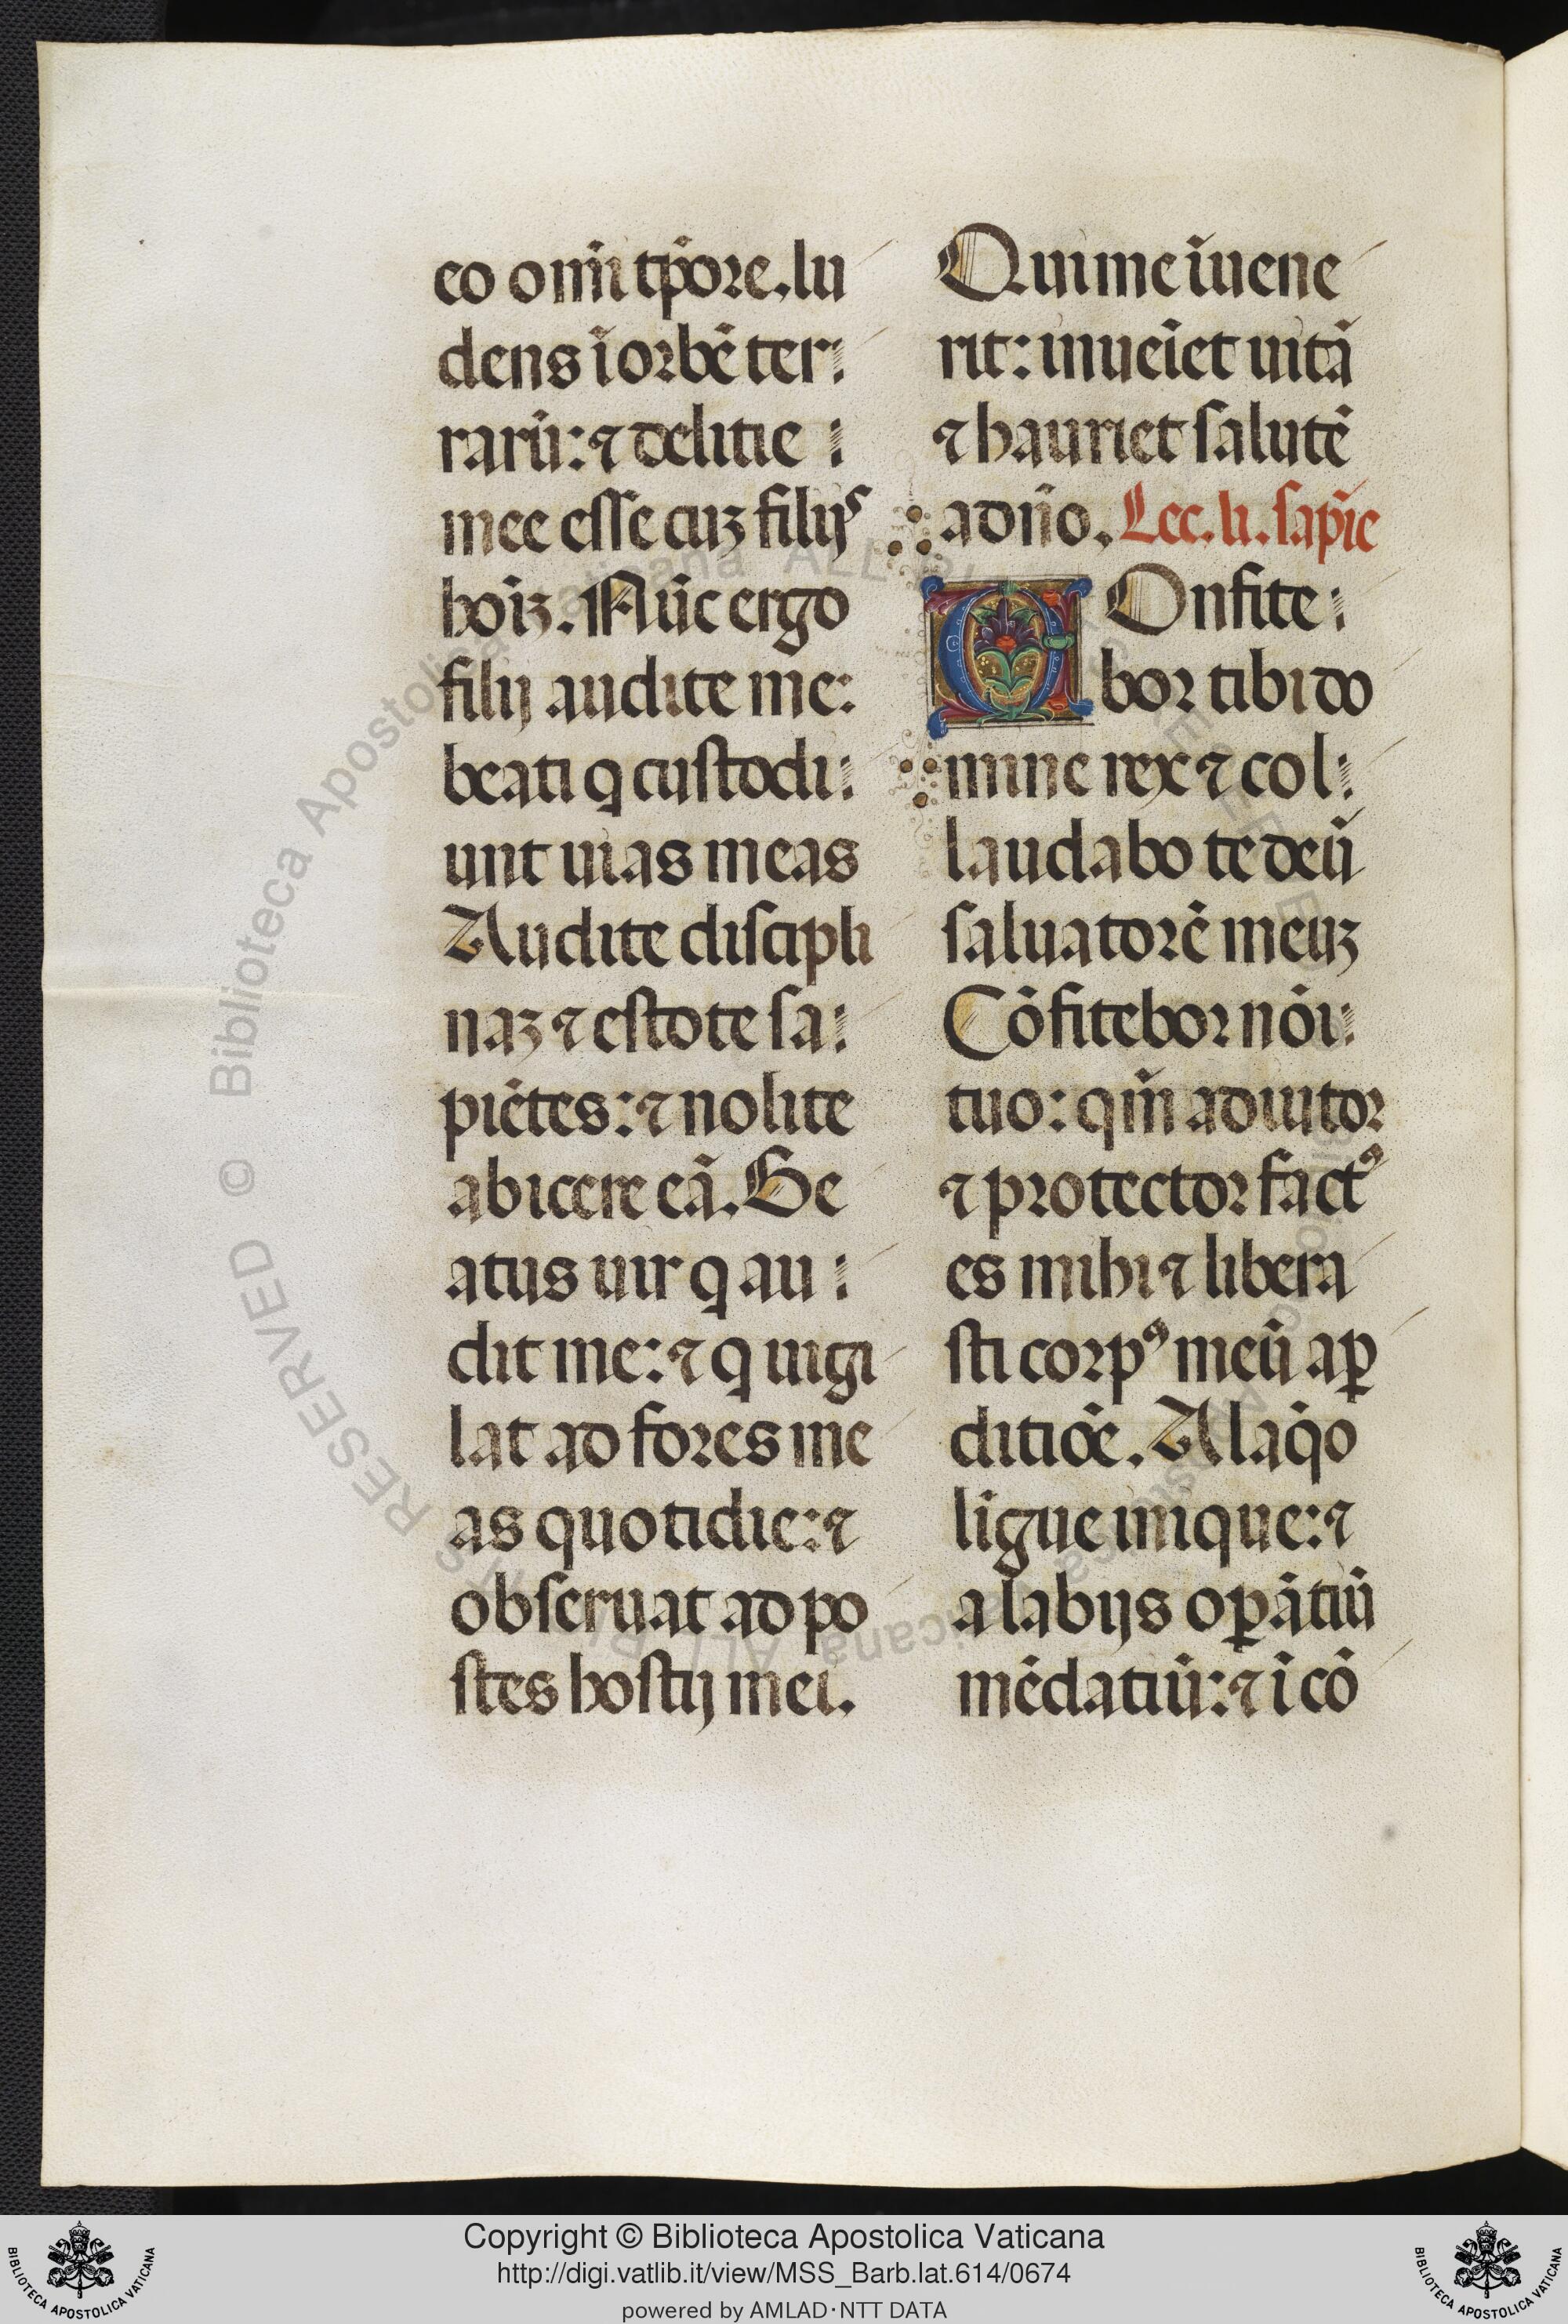 eo om̄i tp̄ore. lu
dens ī orbē ter
rarū: ⁊ delitie
mee esse cuʒ filijˢ
hoīʒ. Nūc ergo
filij audite me:
beati q custodi
unt uias meas
Audite discipli
naʒ ⁊ estote sa
piētes: ⁊ nolite
abicere eā. Be
atus uir q au
dit me: ⁊ q uigi
lat ad fores me
as quotidie: ⁊
obseruat ad po
stes hostij mei.
Qui me īuene
rit: inueīet uitā
⁊ hauriet salutē
a dn̄o. Lec. li. sapīe
C Onfite
bor tibi do
mine rex ⁊ col
laudabo te deū
saluatorē meuʒ
Cōfitebor nōi
tuo: qm̄ adiutor
⁊ protector factꝰ
es mihi ⁊ libera
sti corpꝰ meū a ꝑ
ditiōe. A laq̄o
līgue inique: ⁊
a labijs oꝑātiū
mēdatiū: ⁊ ī cō
Copyright © Biblioteca Apostolica Vaticana
http://digi.vatlib.it/view/MSS_Barb.lat.614/0674
powered by AMLAD·NTT DATA
BIBLIOTECA APOSTOLICA VATICANA
BIBLIOTECA APOSTOLICA VATICANA